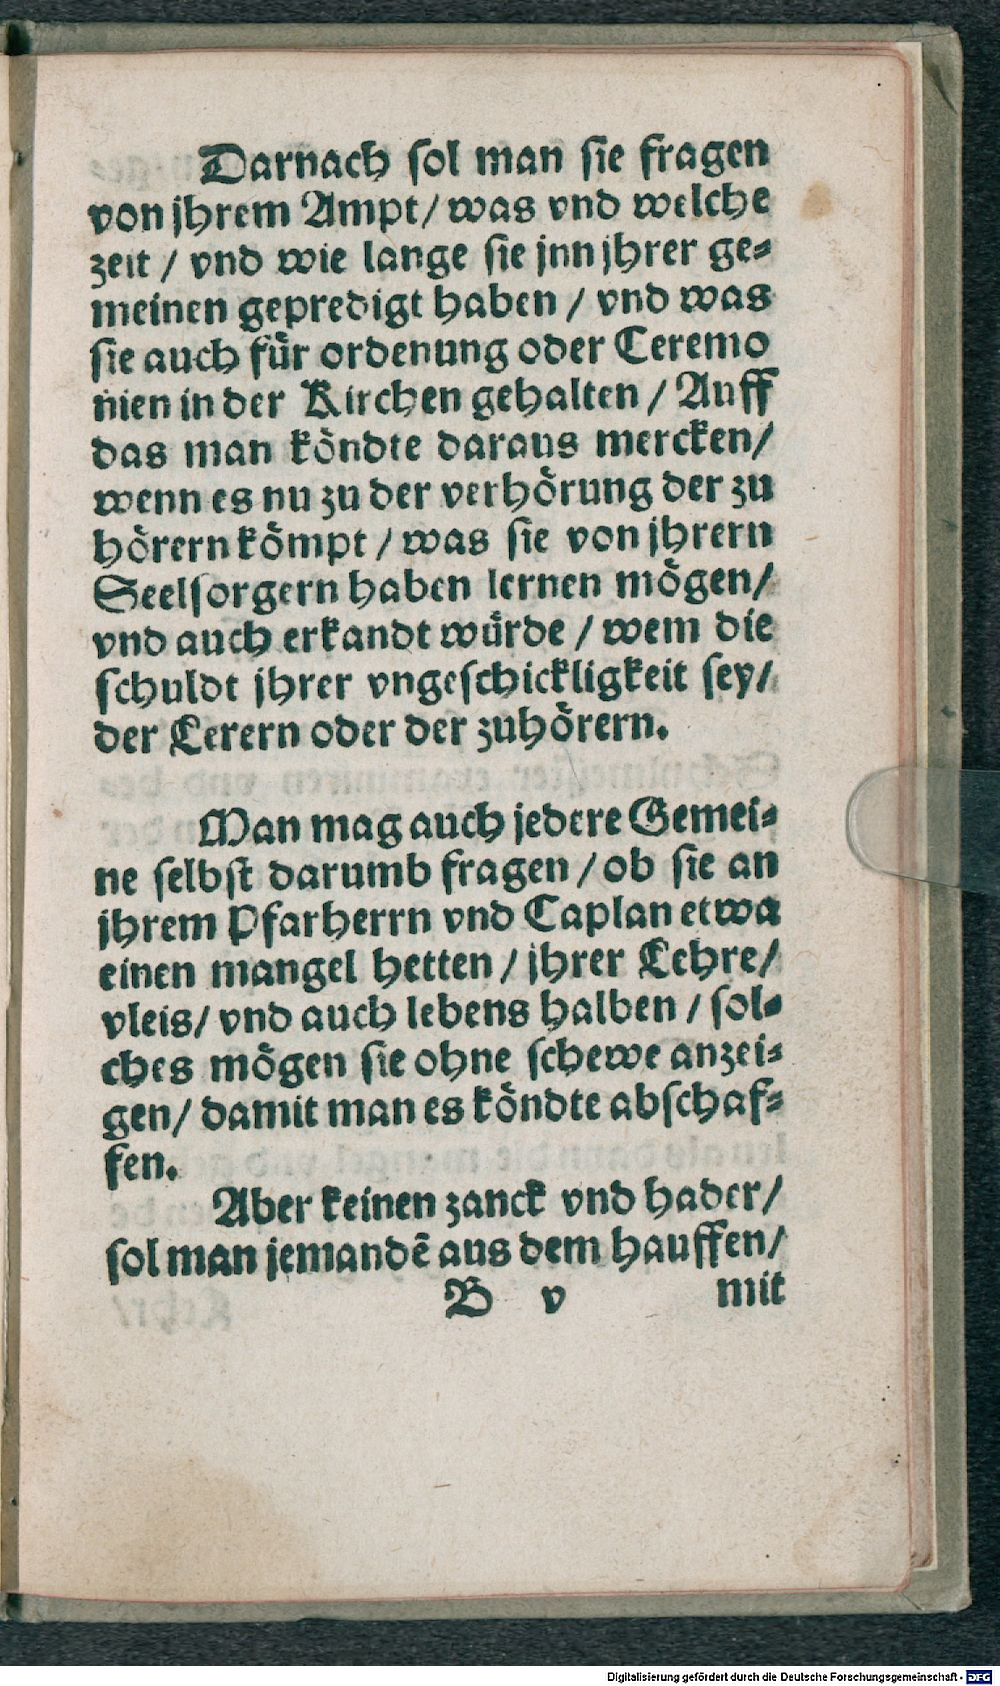 Darnach sol man sie fragen
von jhrem Ampt / was vnd welche
zeit / vnd wie lange sie jnn jhrer ge=
meinen gepredigt haben / vnd was
sie auch für ordenung oder Ceremo
nien in der Kirchen gehalten / Auff
das man köndte daraus mercken /
wenn es nu zu der verhörung der zu
hörern kömpt / was sie von jhrern
Seelsorgern haben lernen mögen /
vnd auch erkandt würde / wem die
schuldt jhrer vngeschickligkeit sey /
der Lerern oder der zuhörern.
Man mag auch jedere Gemei=
ne selbst darumb fragen / ob sie an
jhrem Pfarherrn vnd Caplan etwa
einen mangel hetten / jhrer Lehre /
vleis / vnd auch lebens halben / sol=
ches mögen sie ohne schewe anzei=
gen / damit man es köndte abschaf=
fen.
Aber keinen zanck vnd hader /
sol man jemandē aus dem hauffen /
B v mit
Digitalisierung gefördert durch die Deutsche Forschungsgemeinschaft - DFG